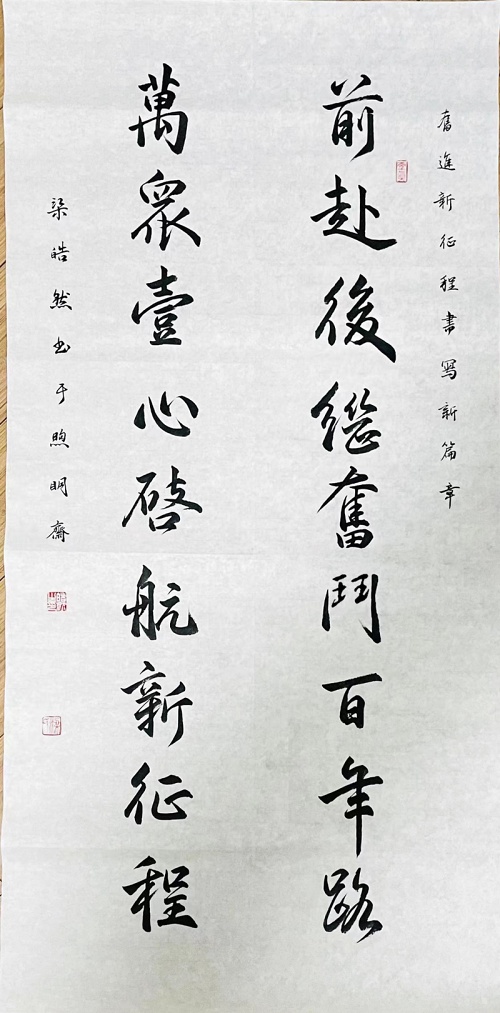 奮進新征程書寫新篇章
前赴後繼奮鬥百年路
萬眾壹心啓航新征程
梁皓然书于煦明齋